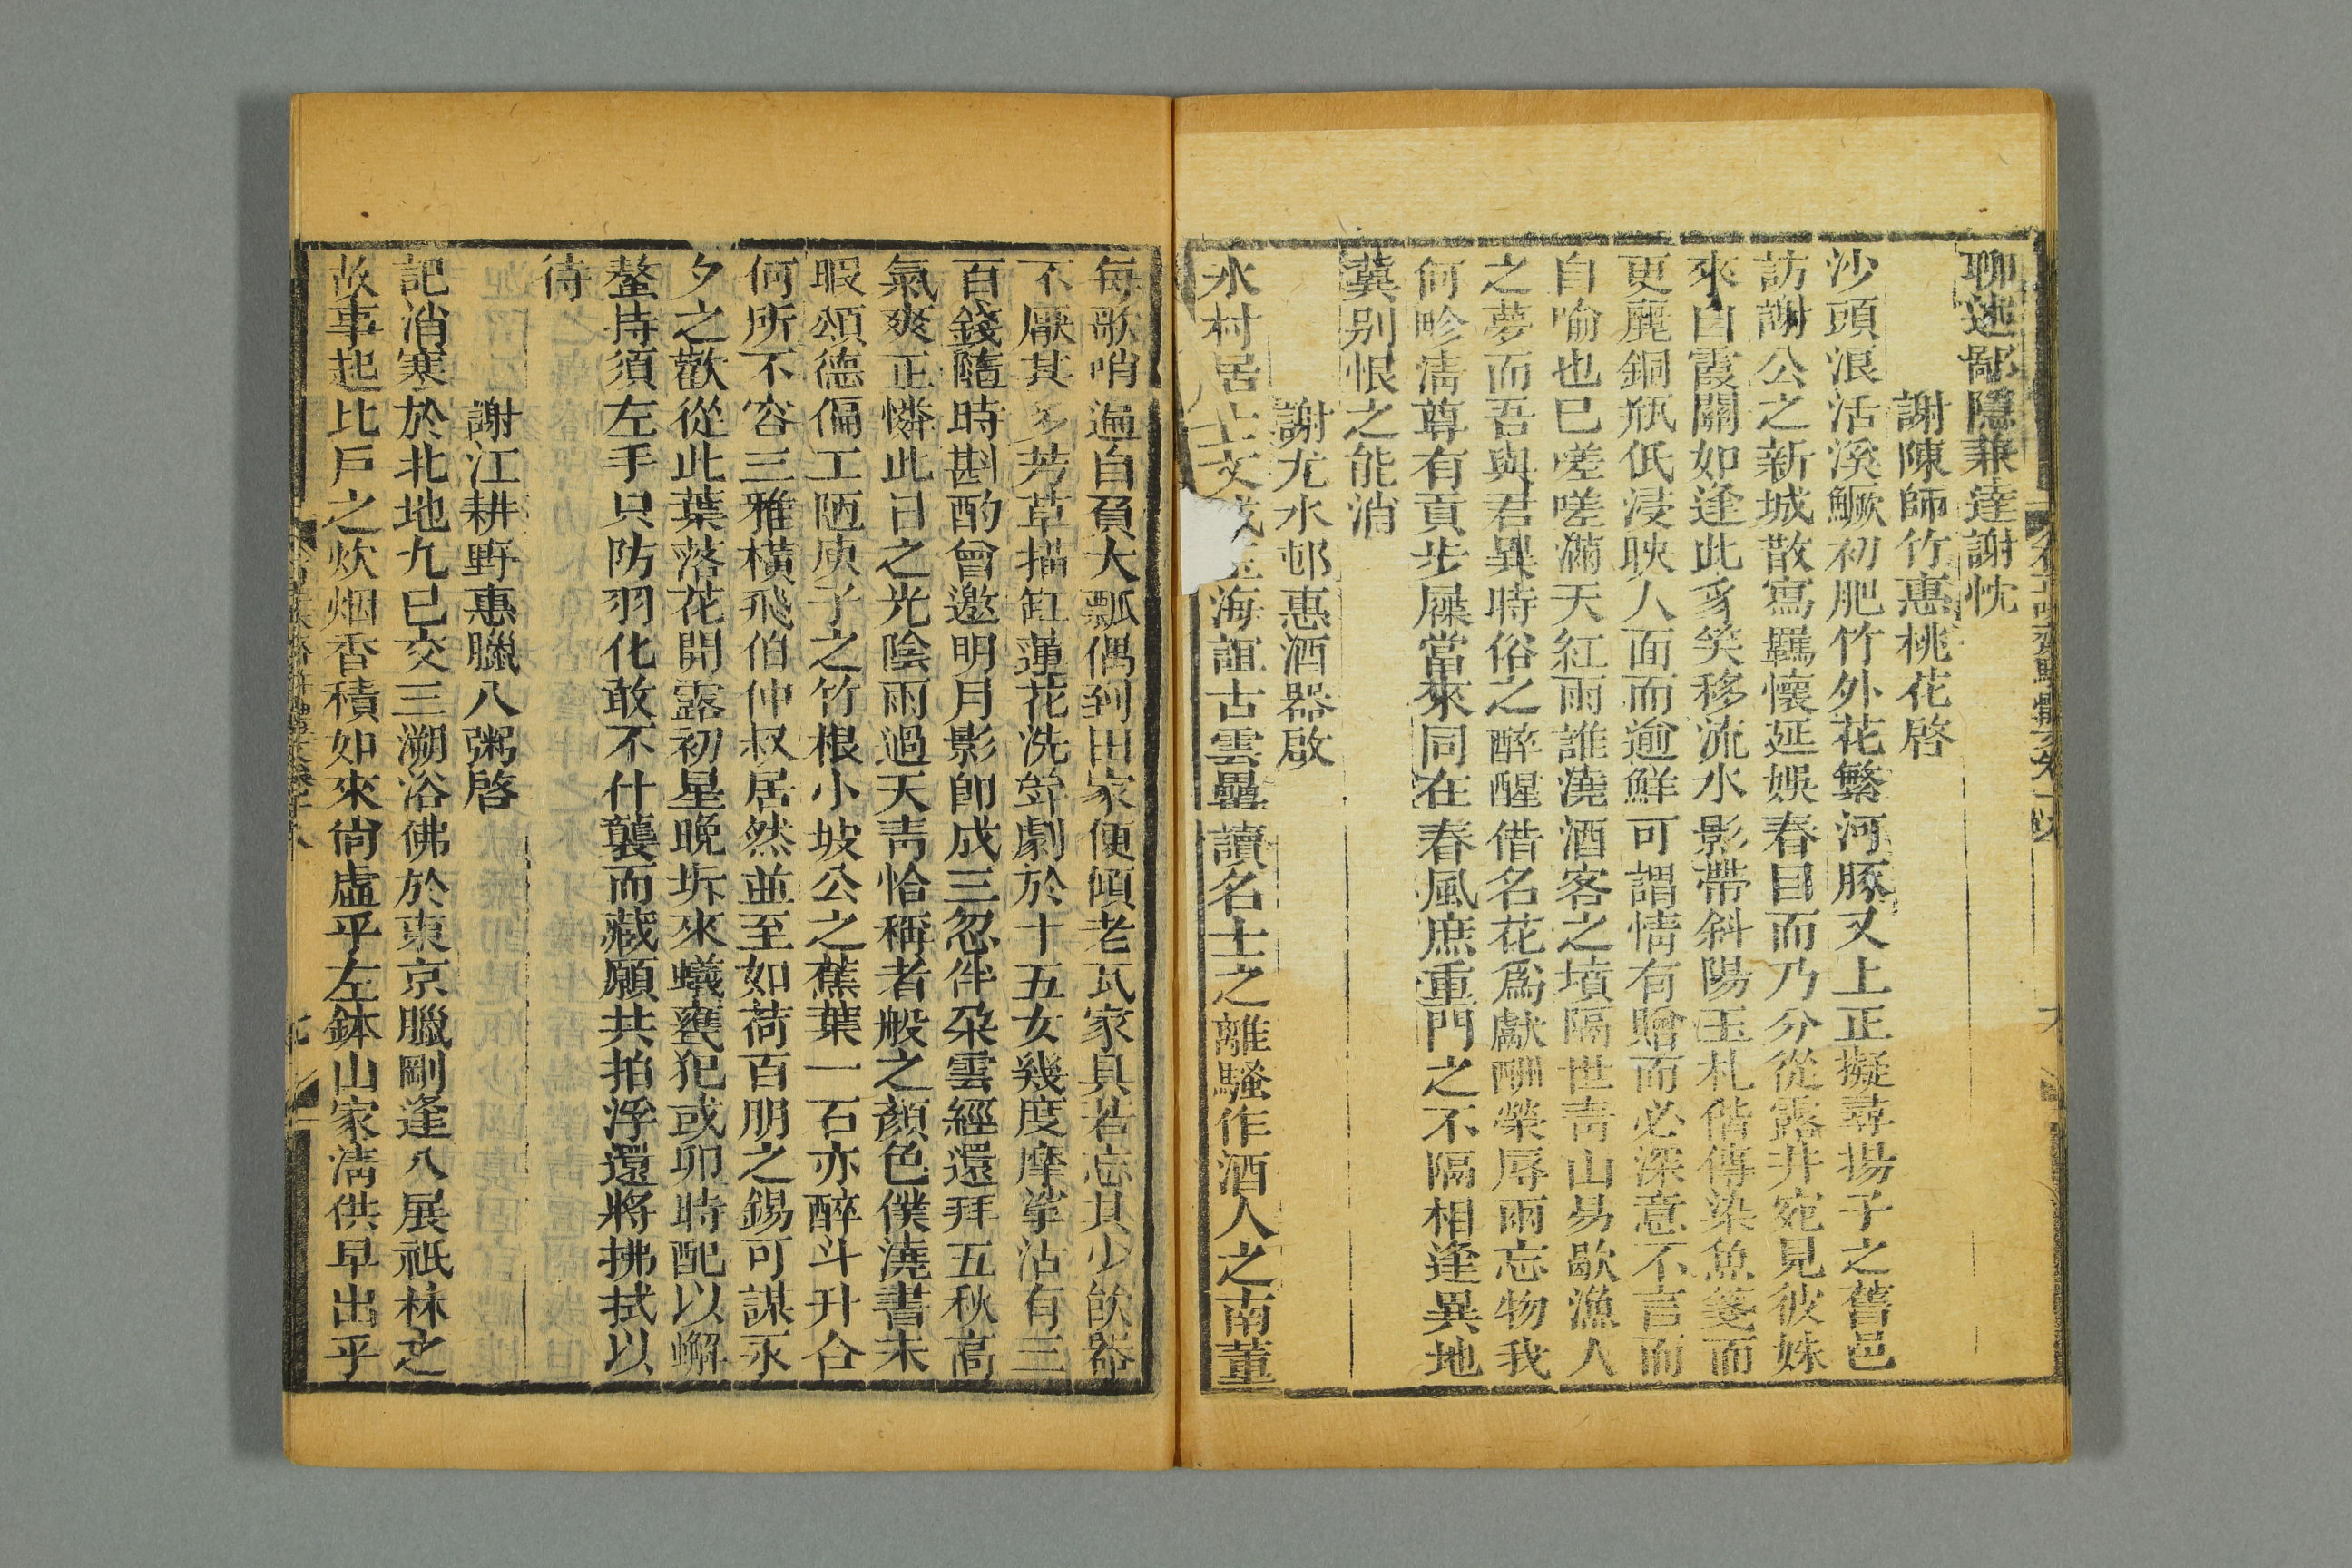 聊述鄙隱兼達謝忱
謝陳師竹惠桃花啓
沙頭浪活溪鱖初肥竹外花繁河豚又上正擬尋揚子之舊邑
訪謝公之新城散寫羈懷延娛春目而乃分從露井宛見彼姝
來自霞關如逢此豸笑移流水影帶斜陽玉札偕傳染魚箋而
更麗銅瓶低浸映人面而逾鮮可謂情有贈而必深意不言而
自喻也已嗟嗟滿天紅雨誰澆酒客之墳隔世青山易歇漁人
之夢而吾與君異時俗之醉醒借名花為獻酬榮辱兩忘物我
何畛清尊有貢步屧當來同在春風庶重門之不隔相逢異地
冀别恨之能消
謝尤水邨惠酒器啟
水村居士文成海誼古雲壘讀名士之離騷作酒人之南董
每歌哨遍自負大瓢偶到田家便傾老瓦家具若忘其少飲器
不厭其多芳草描缸蓮花洗斝劇於十五女幾度摩挲沽有三
百錢隨時斟酌曾邀明月影即成三忽伴朶雲經還拜五秋高
氣爽正憐此日之光陰雨過天青恰稱者般之顏色僕澆書未
暇頌德偏工陋庾子之竹根小坡公之蕉葉一石亦醉斗升合
何所不容三雅横飛伯仲叔居然並至如荷百朋之錫可謀永
夕之歡從此葉落花開露初星晚坼來蟻甕犯或卯時配以蠏
螯持須左手只防羽化敢不什襲而藏願共拍浮還將拂拭以
待
謝江耕野惠臘八粥啓
記消寒於北地九巳交三溯浴佛於東京臘剛逢八展祇林之
故事起比戶之炊烟香積如來尙虛乎左鉢山家清供早出乎